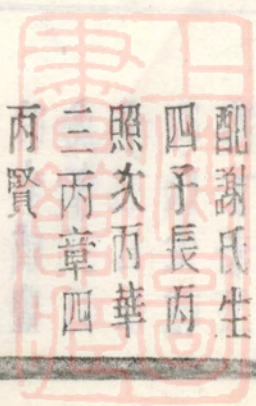 配謝氏生
四子長丙
照次丙華
三丙章四
丙賢